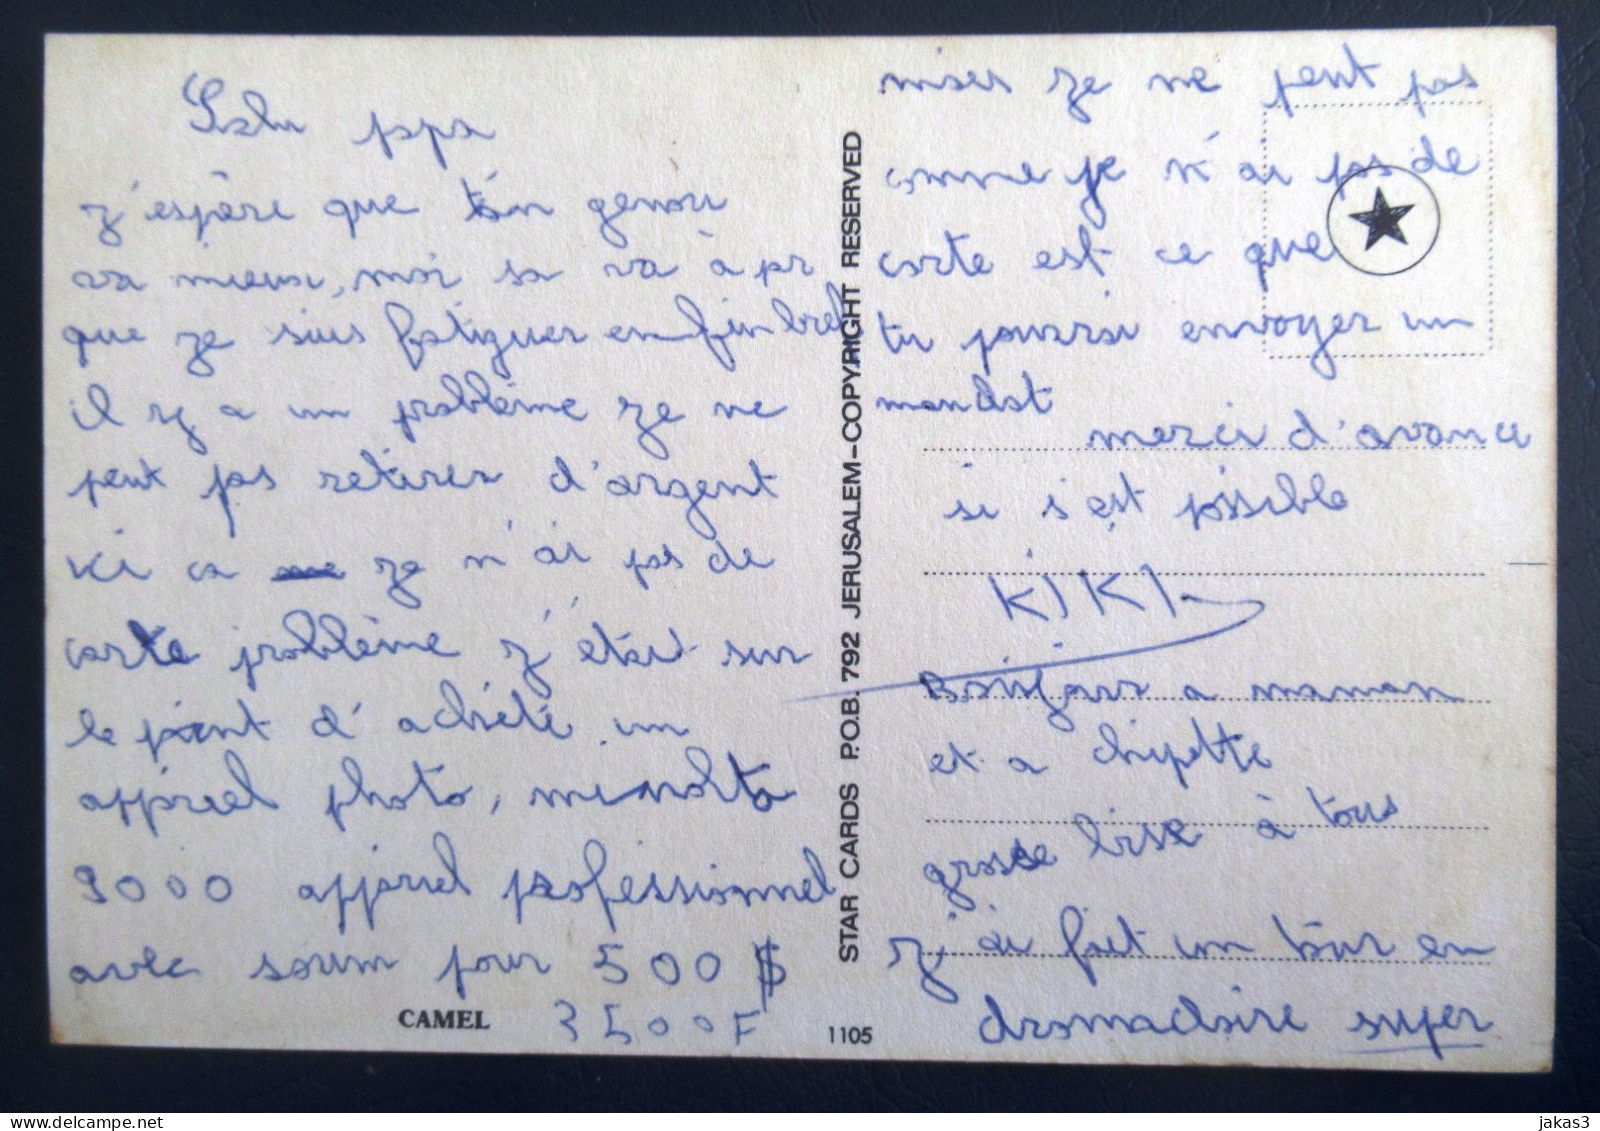 Salu papa
j'espère que ton genou
va mieux, moi sa va à pr
que je suis fatiguer enfin bref
il y a un problème je ne
peut pas retirer d'argent
ici ca je n'ai pas de
carte problème j'étai sur
le point d'achété un
appareil photo, minolta
9000 appareil professionnel
avec zoum pour 500 $
3500F
mises je ne peut pas
comme je n'ai pas de
carte est ce que
tu pourrai envoyer un
mandat
merci d'avance
si s'est possible
KIKI
Bonjour a maman
et a chipette
grosse bise à tous
j'ai fait un tour en
dromadaire super
CAMEL
1105
STAR CARDS P.O.B. 792 JERUSALEM–COPYRIGHT RESERVED
jakas3